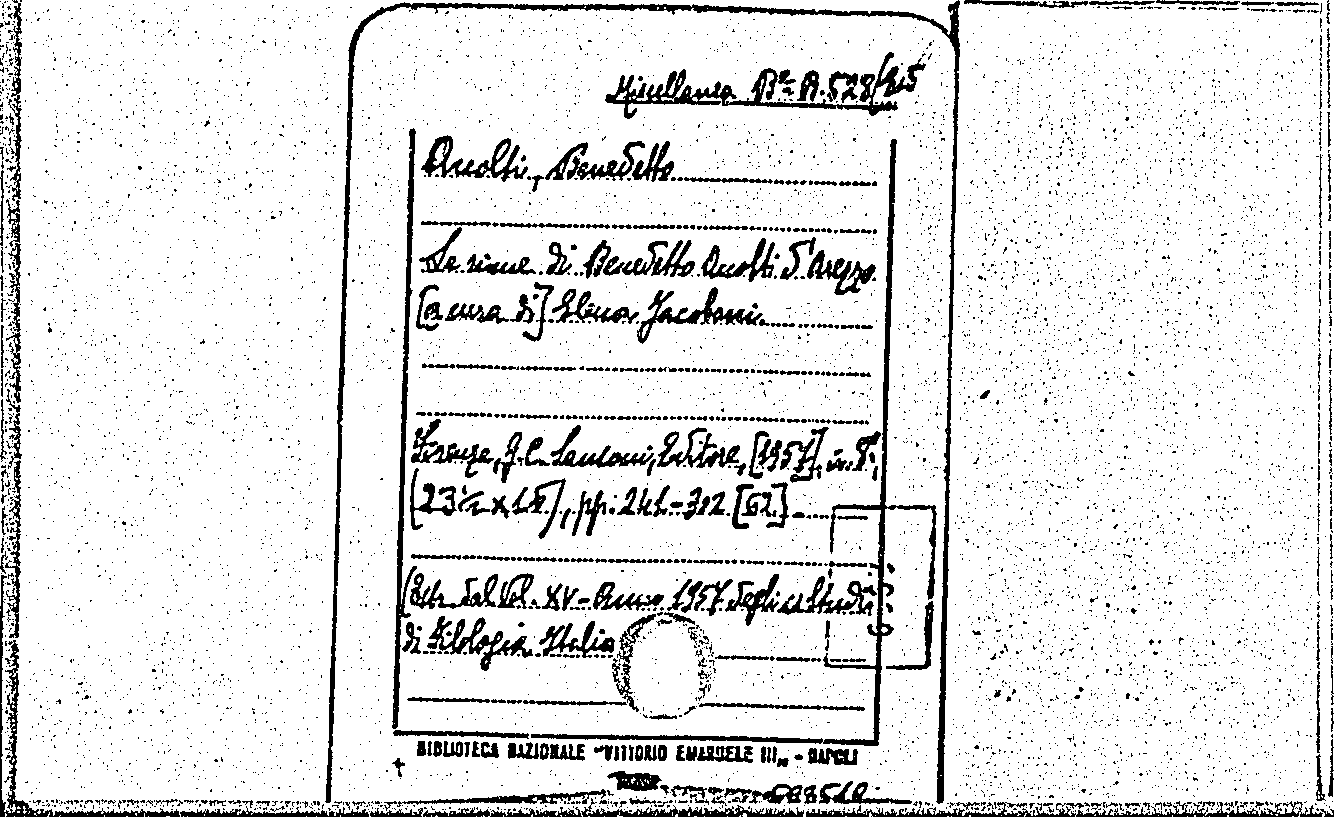 Miscellanea Bª A. 528/25
Accolti, Benedetto
Le rime di Benedetto Accolti d'Arezzo
[a cura di] Elina Jacoboni.
Firenze, G. C. Sansoni, Editore, [1957], in 8°,
(23½ x 15), pp. 241-302 [62].
(Estr. dal Vol. XV - Anno 1957 degli «Studi
di Filologia Italia
BIBLIOTECA NAZIONALE "VITTORIO EMANUELE III" - NAPOLI